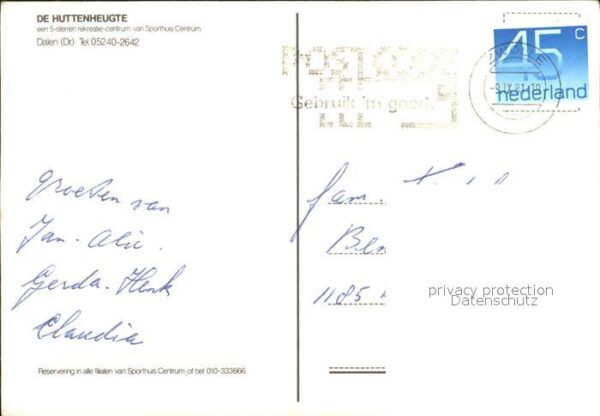 DE HUTTENHEUGTE
een 5-sterren rekreatie-centrum van Sporthuis Centrum
Dalen (Dr) Tel. 05240-2642
45 c
nederland
ZWOLLE
-9.IX.81.-19
POSTCODE
Gebruik 'm goed.
Groeten van
Jan. Alie.
Gerda. Henk
Claudia
fam.
1185
privacy protection
Datenschutz
Reservering in alle filialen van Sporthuis Centrum, of bel 010-333666.